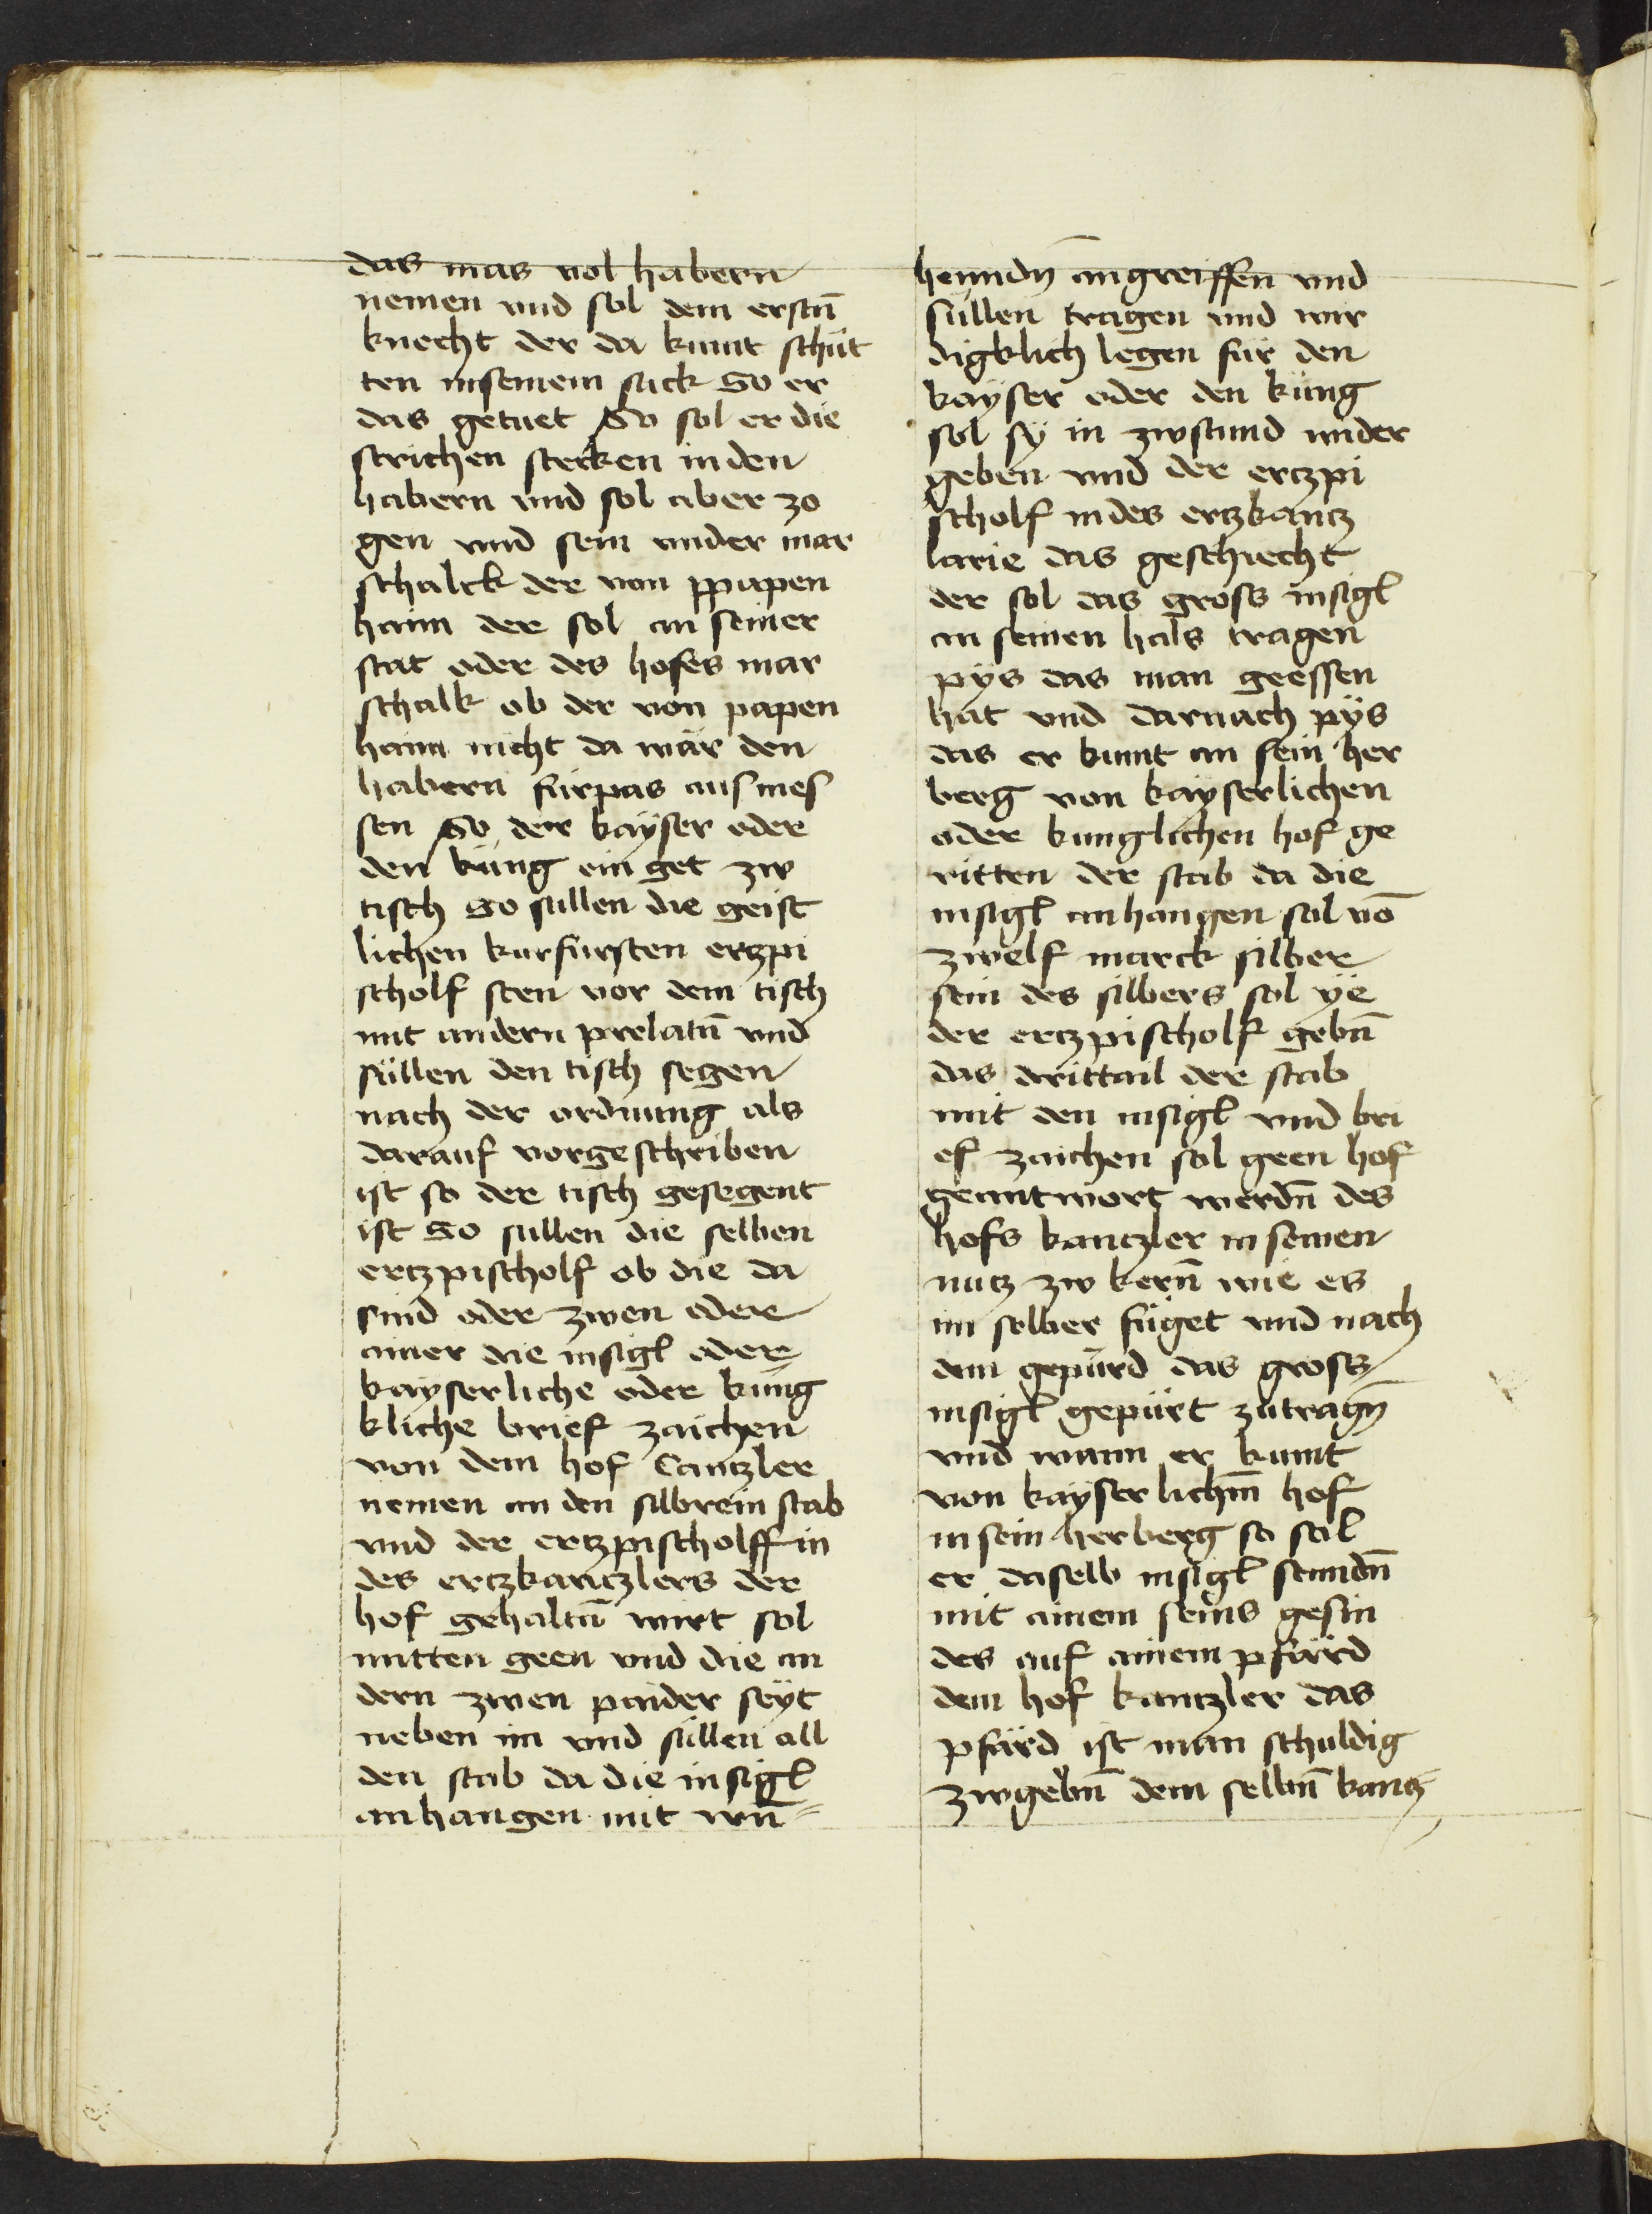 das mas vol habern
nemen vnd sol dem erstn̄
knecht der da kumt schüt
ten in seinem sack So er
das getuet So sol er die
strichen stecken in den
habern vnd sol aber zo
gen vnd sein vnder mar
schalck der von ppapen
haim der sol an seiner
stat oder des hofes mar
schalk ob der von papen
haim nicht da wär den
habern fürpas aus mes
sen So der kayser oder
den küng ein get zw
tisch So sullen die geist
lichen kurfursten ertzpi
scholf sten vor dem tisch
mit andern prelatn̄ vnd
süllen den tisch segen
nach der ordnung als
darauf vorgeschriben
ist so der tisch gesegent
ist So sullen die selben
ertzpischolf ob die da
sind oder zwen oder
ainer die insigl oder
kayserliche oder küng
kliche brief zaichen
von dem hof Cantzler
nemen an den silbrein stab
vnd der ertzpischolff in
des ertzkantzlers der
hof gehaltn̄ wirt sol
mitten geen vnd die an
dern zwen paider seyt
neben im vnd süllen all
den stab da die insigl
anhangen mit wn̄=
henndn̄ angreiffen vnd
süllen tragen vnd wir
digklich legen für den
kayser oder den küng
sol sy in zwstund wider
geben vnd der ertzpi
scholf in des ertzkantz
larie das geschiecht
der sol das gross insigl
an seinen hals tragen
pys das man geessen
hat vnd darnach pys
das er kumt an sein her
berg von kayserlichen
oder kunglichen hof ge
ritten der stab da die
insigl anhangen sol vō
zwelf marck silber
sein des silbers sol ye
der ertzpischolf gebn̄
das drittail der stab
mit den insigl vnd bri
ef zaichen sol geen hof
geantwort werdn̄ des
hofs kantzler in seinen
nutz zw kern̄ wie es
im selber füget vnd nach
dem gepürd das gross
insigl gepürt zutragn̄
vnd wann er kumt
von kayserlichm̄ hof
in sein herberg so sol
er daselb insigl senndn̄
mit ainem seins gesin
des auf ainem pfärd
dem hof kantzler das
pfärd ist man schuldig
zwgebn̄ dem selbn̄ kantz